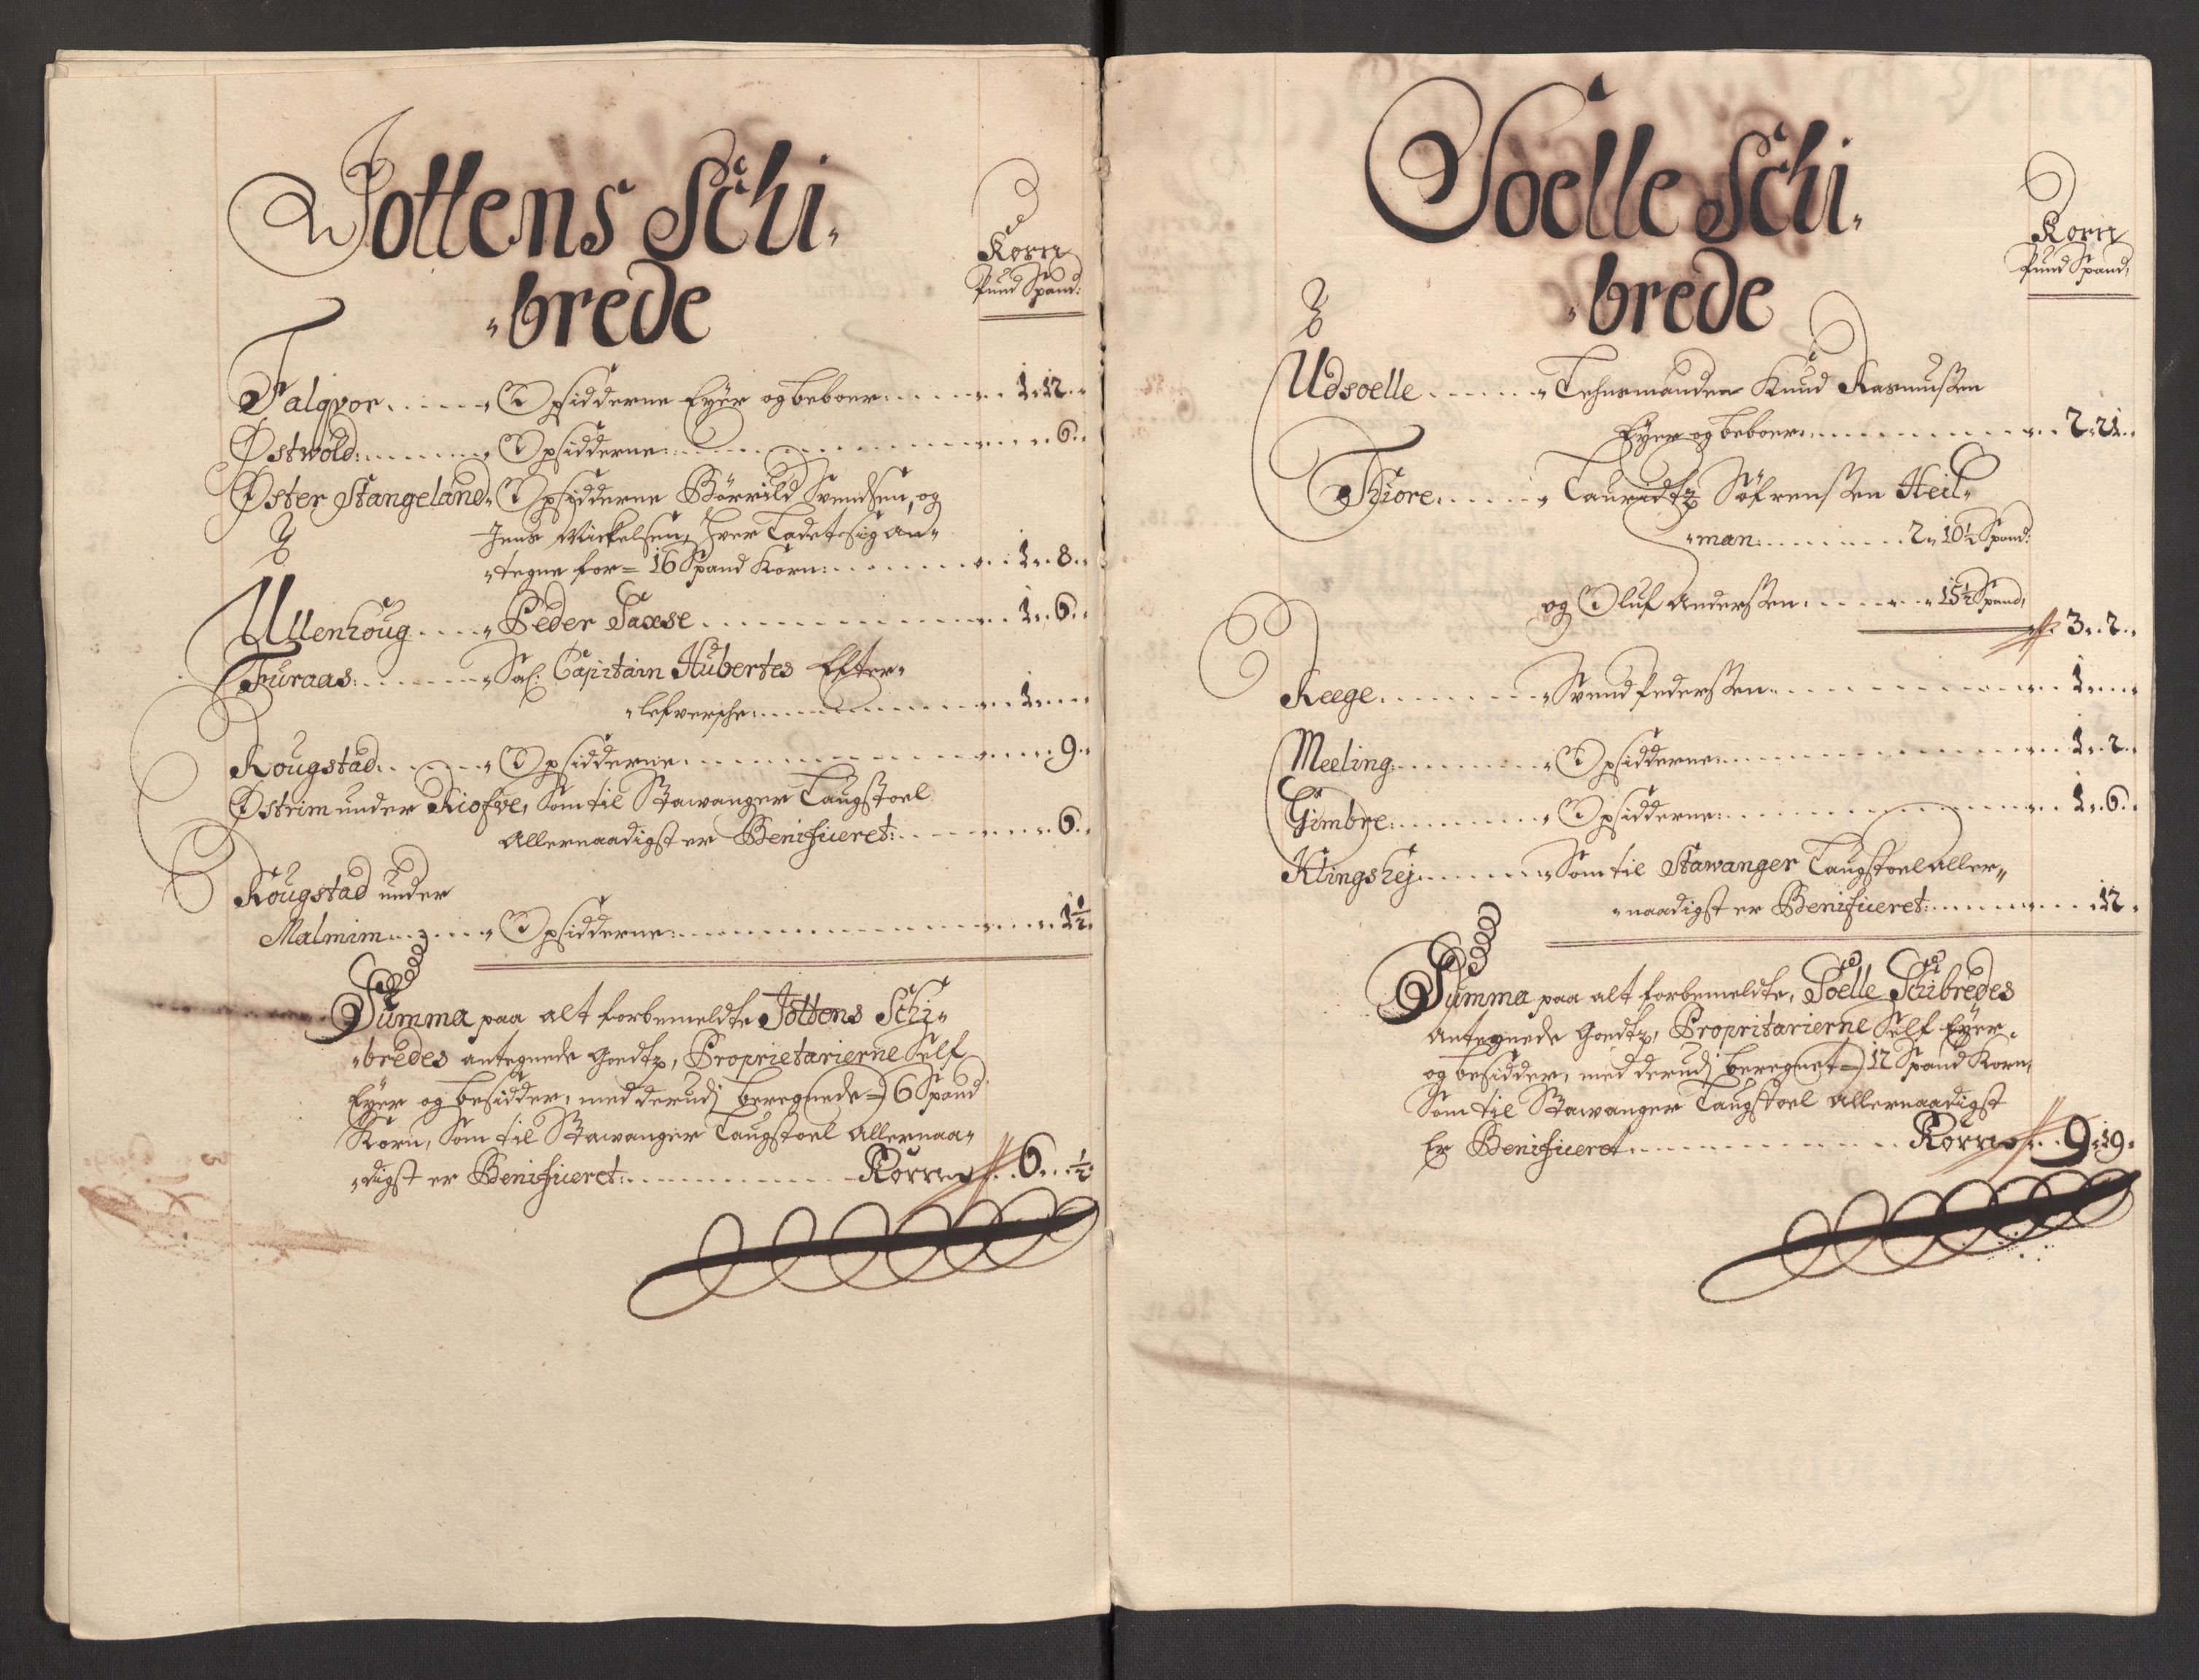 Jottens Schi„
„brede
Korn
Pund Spand:
Falgvor..... „ Opsidderne Eyer og beboer....... 1„12„
Østwold:...... „ Opsidderne:............ 6„
Øster Stangeland„ Opsidderne Börrild Svendsen, og
Jens Mickelsen, hver ladet sig an„
„tegne for= 16 Spand Korn:........ 1„ 8„
Ullenhoug.... „ Peder Saxse............ 1„ 6„
Furaas:...... „ Sal: Capitain Hubertes Efter„
„lefversche:............ 1„ „
Rougstad..... „ Opsidderne............ 9„
Østrim under Kiofve, Som til Stawanger Laugstoel
Allernaadigst er Benificeret:....... 6„
Rougstad under
Malmim...... „ Opsidderne:............ 1½„
Summa paa alt forbemeldte Jottens Schi„
„bredes antegnede Goedtz, Proprietarierne Self
Eyer og besidder, med derudj beregnede= 6 Spand
Korn, Som til Stawanger Laugstoel Allernaa„
„digst er Benificeret:........... Korn 6„ ½
Soelle Schi„
„brede
Korn
Pund Spand,
Udsoelle...... „ Lehnsmanden Knud Rasmussen
Eyer og beboer............ 2„21„
Tiore...... „ Lauradtz Söfrenssen Heil„
„man:........ 2„ 10½ Spand:
og Oluf Anderssen....... „ 15½ Spand,
3„ 2„
Reege........ „ Svend Pederssen............ 1„ „
Meeling:........ „ Opsidderne:............ 1„ 2„
Gimbre:........ „ Opsidderne:............ 1„ 6„
Klingshej........ „ Som til Stawanger Laugstoel aller„
„naadigst er Benificeret:........ 12„
Summa paa alt forbemeldte, Soelle Schibredes
Antegnede Goedtz, Propritarierne Self Eyer„
og besidder, med derudj beregnet= 12 Spand Korn,
Som til Stawanger Laugstoel Allernaadigst
Er Benificeret............ Korn 9„19„